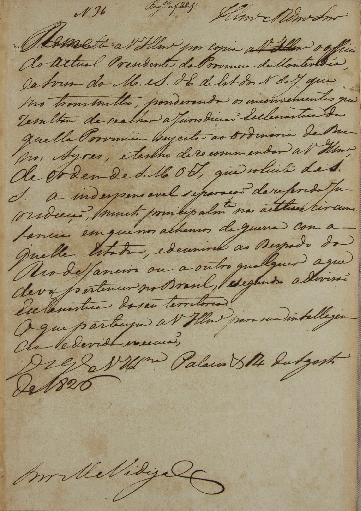 N. 36
Illmo. e Rdmo. Snr.
Remeto a V. Illma. por copia o officio
do actual Presidente da Provincia de Montevideo,
ea hum do M. es d'E. de 1 de do N. de 7 que
me transmittio, ponderando os inconvenientes que
resultão de estar a Jurisdicção Ecclesiastica da
quella Provincia sugeita ao ordinario de Bue
nos Ayres, e tenho de recommendar a V. Illma.
de Ordem de S. M. O I., que solicite da S.
S. a indespensavel separação da referida Ju
risdicção, muito principalmte. na actual circuns
tancia em que nos achamos de guerra com a
quelle Estado, e de unirse ao Bispado do
Rio de Janeiro ou a outro qualquer a que
deva pertencer no Brasil, segundo a divisão
Ecclesiastica do seu territorio.
O que participo a V. Illma. para sua intelligen
cia e devida execução.
D. G. a V. Illma. Palacio 14 de Agosto
de 1826
Snr. M. Vidigal